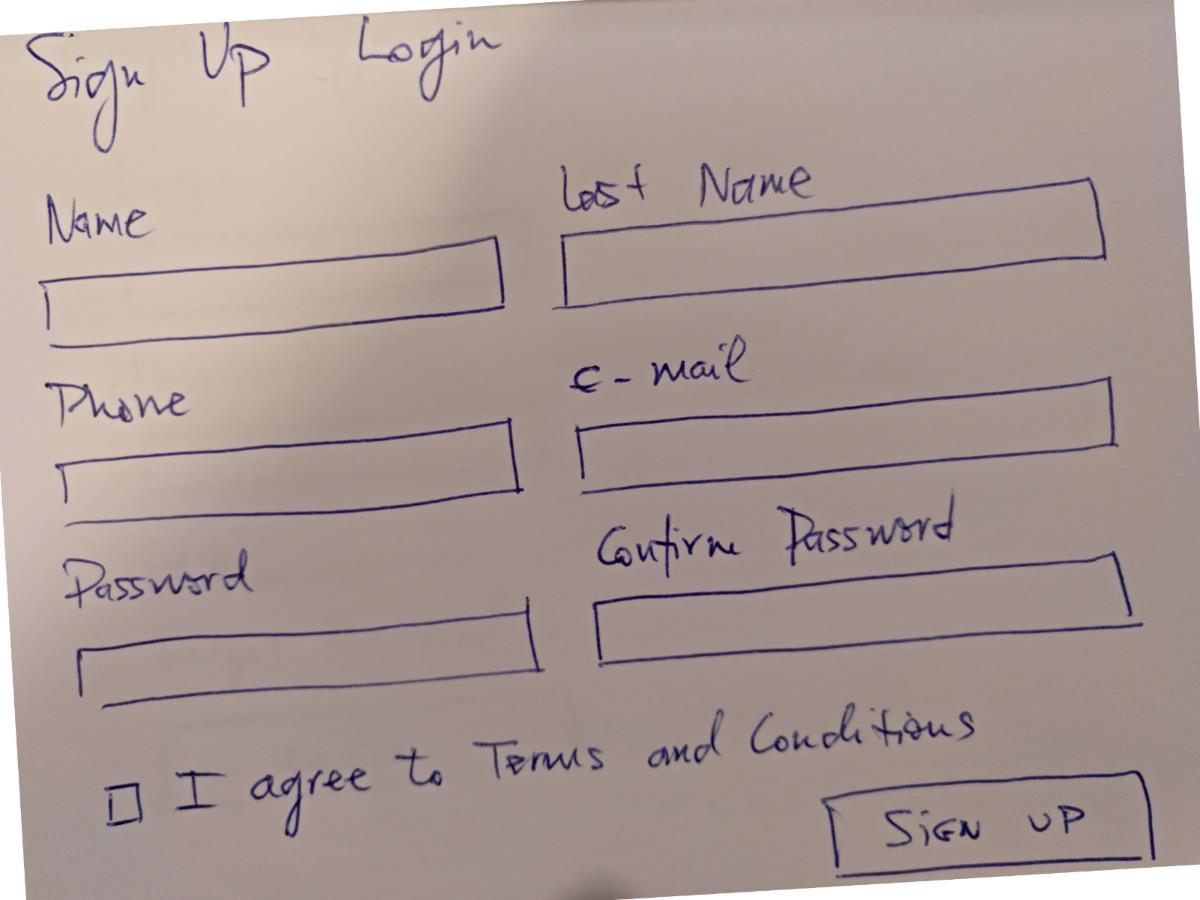 Sign Up Login
Name Last Name
Phone e-mail
Password Confirm Password
I agree to Terms and Conditions
SiGN UP